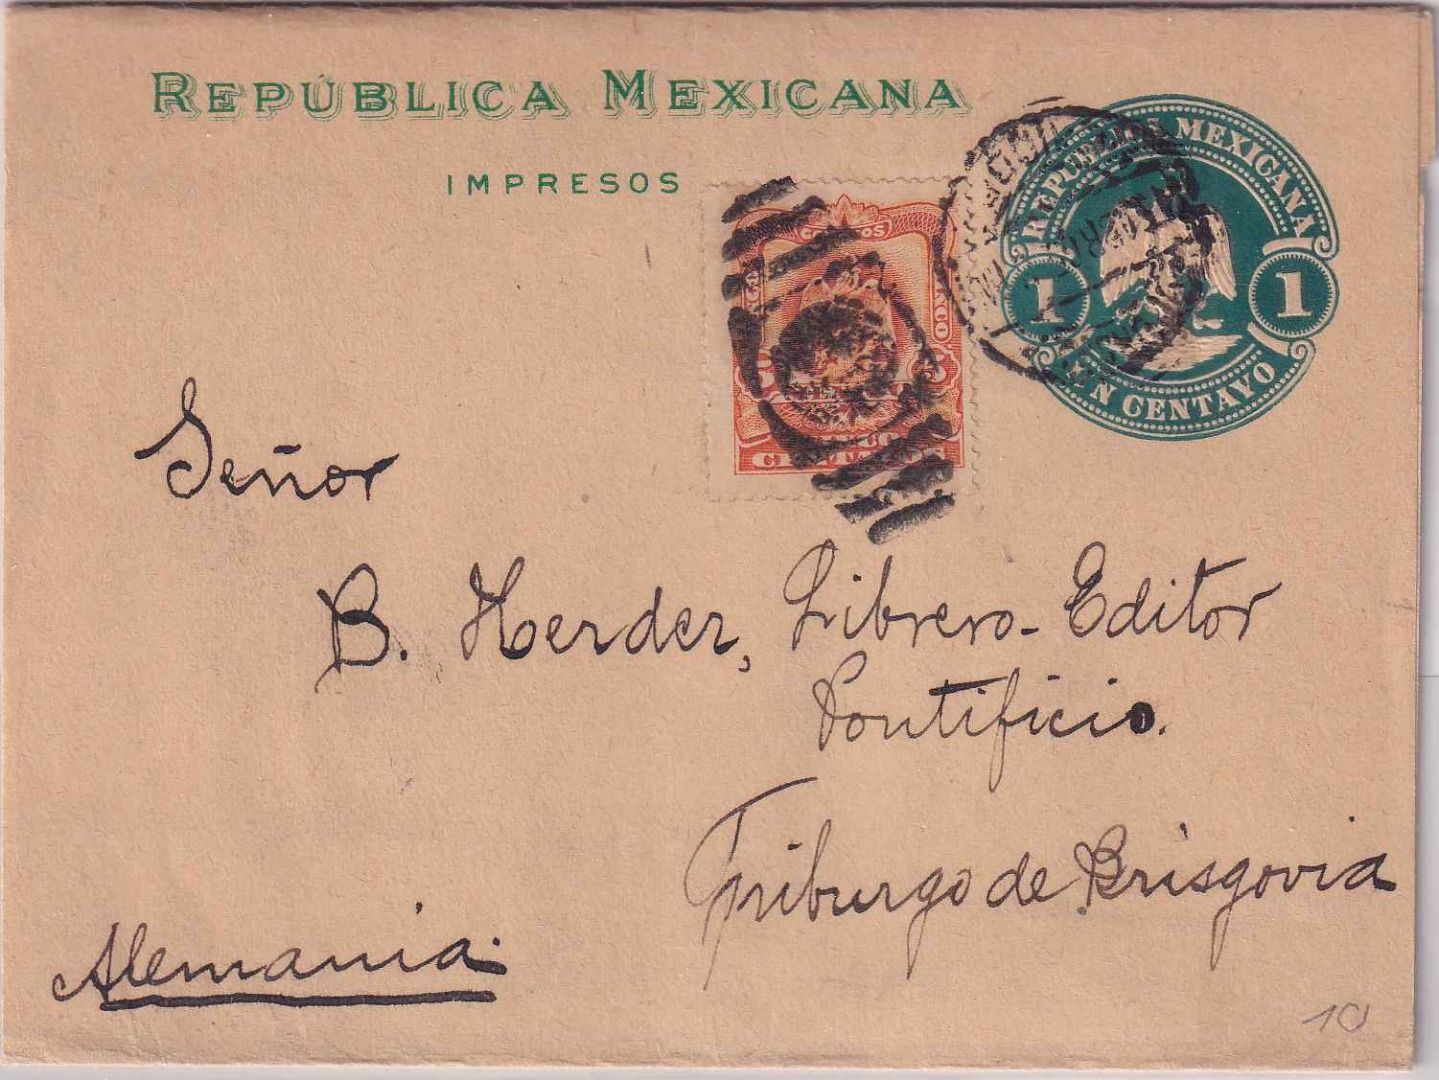 REPÚBLICA MEXICANA
IMPRESOS
REPUBLICA MEXICANA
1 1
UN CENTAVO
CORREOS
CINCO
CENTAVOS
Señor
B. Herder, Librero-Editor
Pontificio.
Friburgo de Brisgovia
Alemania.
10